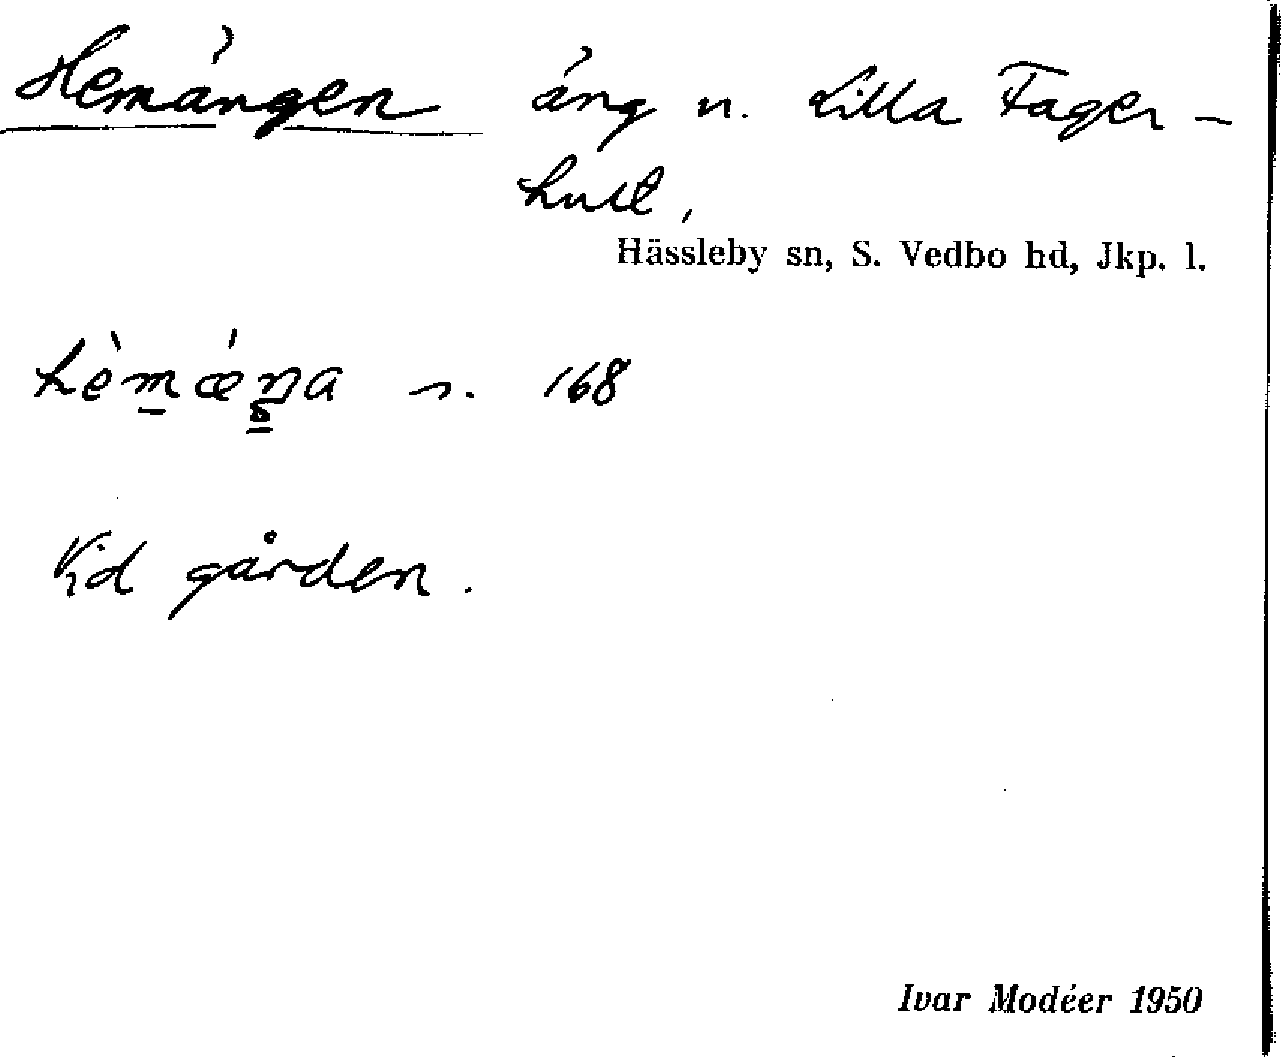 Hemängen äng n. Lilla Fager-
hult,
Hässleby sn, S. Vedbo hd, Jkp. l.
hèmǽŋa n. 168
Vid gården.
Ivar Modéer 1950